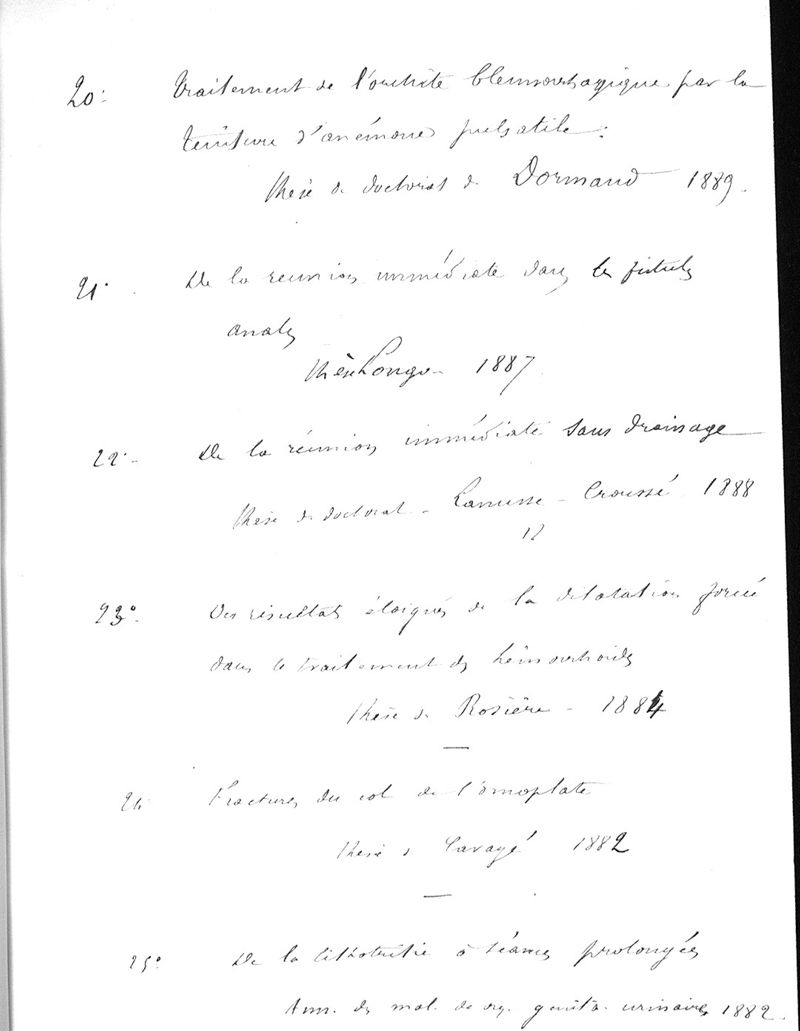 20° Traitement de l'orchite blennorrhagique par la
teinture d'anémone pulsatile.
Thèse de doctorat de Dormand 1889.
21° De la réunion immédiate dans les fistules
anales
Thèse Longo 1887
22° De la réunion immédiate sans drainage
Thèse de doctorat - Lanusse - Croussé 1888
23° Des résultats éloignés de la dilatation forcée
dans le traitement des hémorrhoides
Thèse de Rosière - 1884
24 Fractures du col de l'omoplate
Thèse de Cavayé 1882
25° De la lithotritie à séances prolongées
Ann. des mal. des org. génito-urinaires 1882.